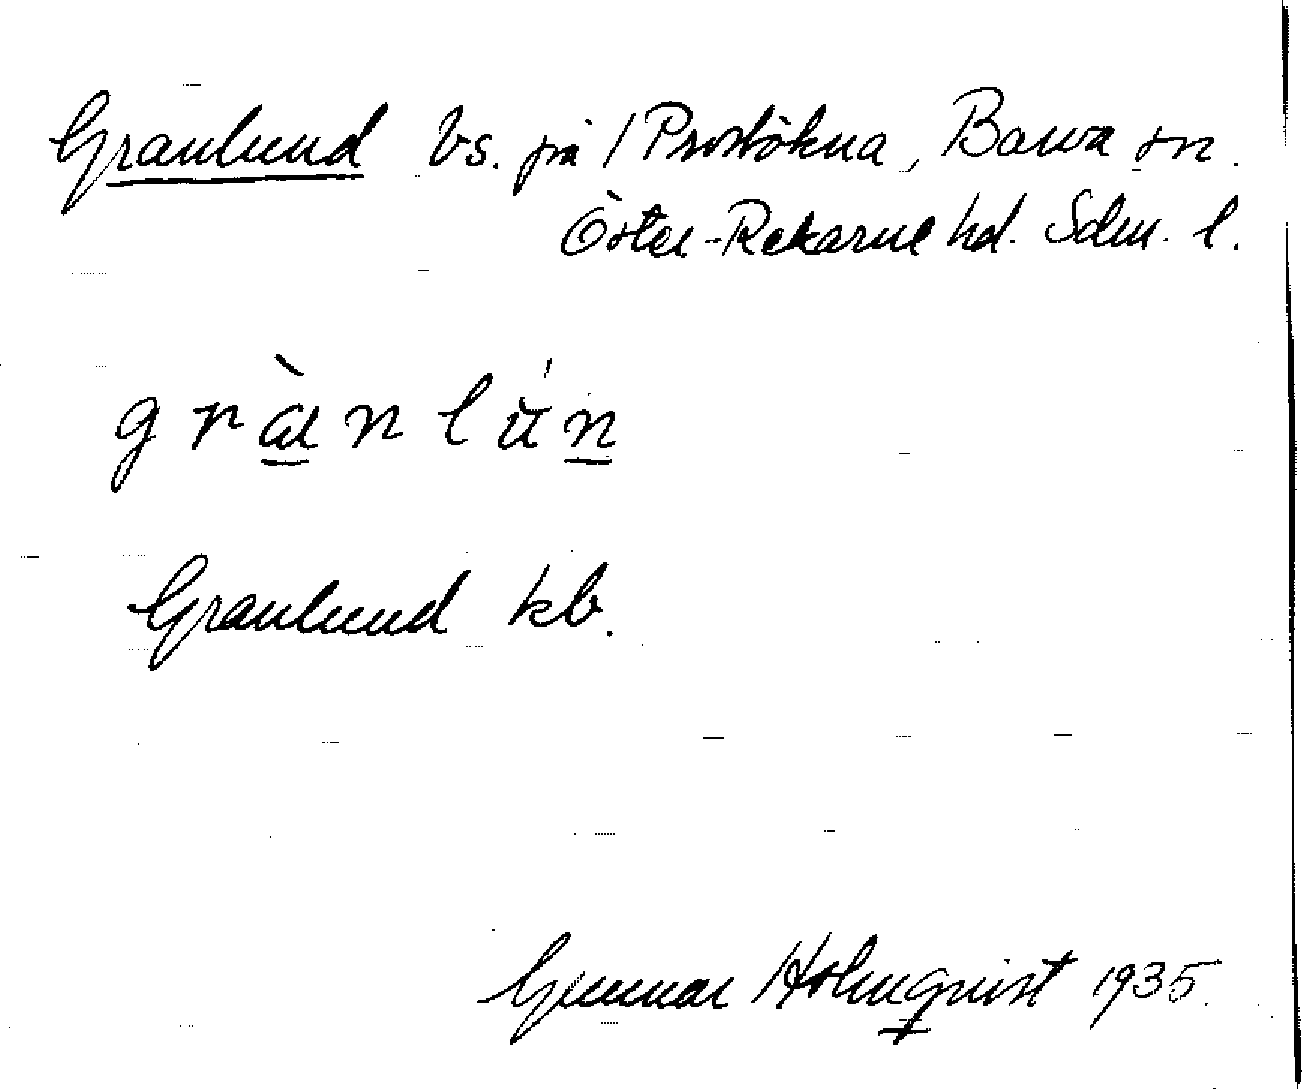 Granlund bs. på / Prostökna, Barva sn.
Öster-Rekarne hd. Sdm. l.
grànlún
Granlund kb.
Gunnar Holmqvist 1935.